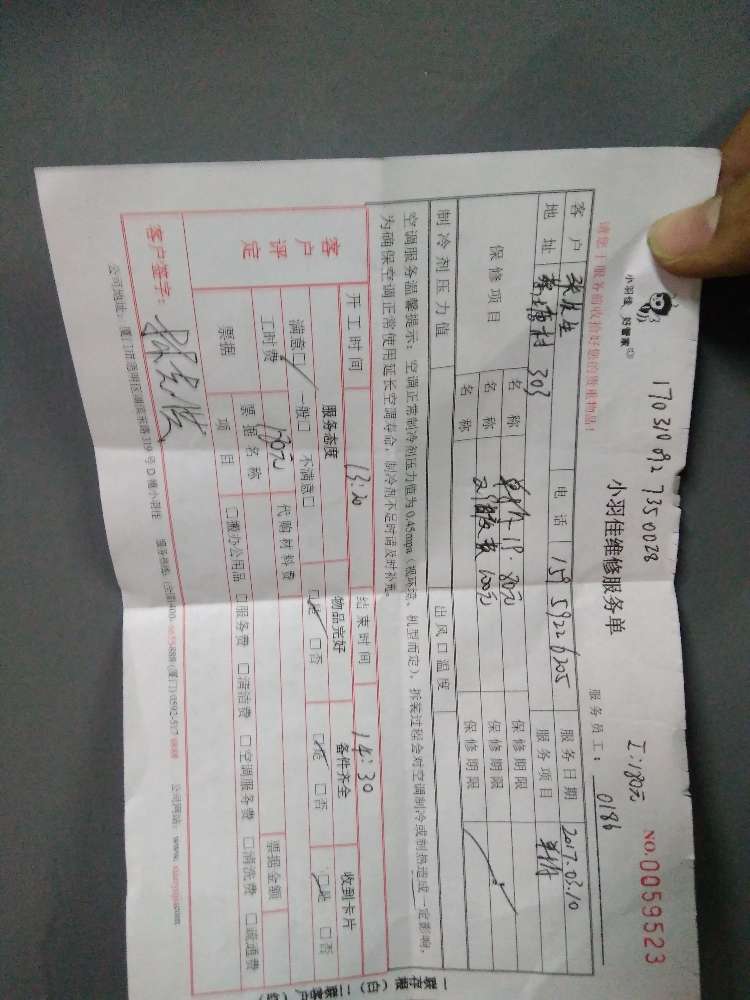 小羽佳 好管家
170310092 7350028
工:180元
NO.0059523
小羽佳维修服务单
服务员工: 0186
请您于服务前收拾好您的贵重物品!
客户 电话 15959226205 服务日期 2017.03.10
地址 303 服务项目
保修项目 名称 单价 18.80元 保修期限
名称 100元 保修期限
名称 保修期限
制冷剂压力值 出风口温度
空调服务温馨提示: 空调正常制冷剂压力值为0.45mpa(视环境、机型而定), 拆装过程会对空调制冷或制热造成一定影响,
为确保空调正常使用延长空调寿命, 制冷剂不足时请及时补充。
客户评定 开工时间 13:20 结束时间 14:30
服务态度 物品完好 备件齐全 收到卡片
满意□ 一般□ 不满意□ □是 □否 □是 □否 □是 □否
工时费 180元 代购材料费
票据 票据名称 票据金额
项目 □搬办公用品 □服务费 □清洁费 □空调服务费 □清洗费 □疏通费
客户签字:
公司地址: 厦门市思明区 319号 小羽佳 服务热线: 公司网站: www.xiaoyujia.com
一联存根(白) 二联客户(红)